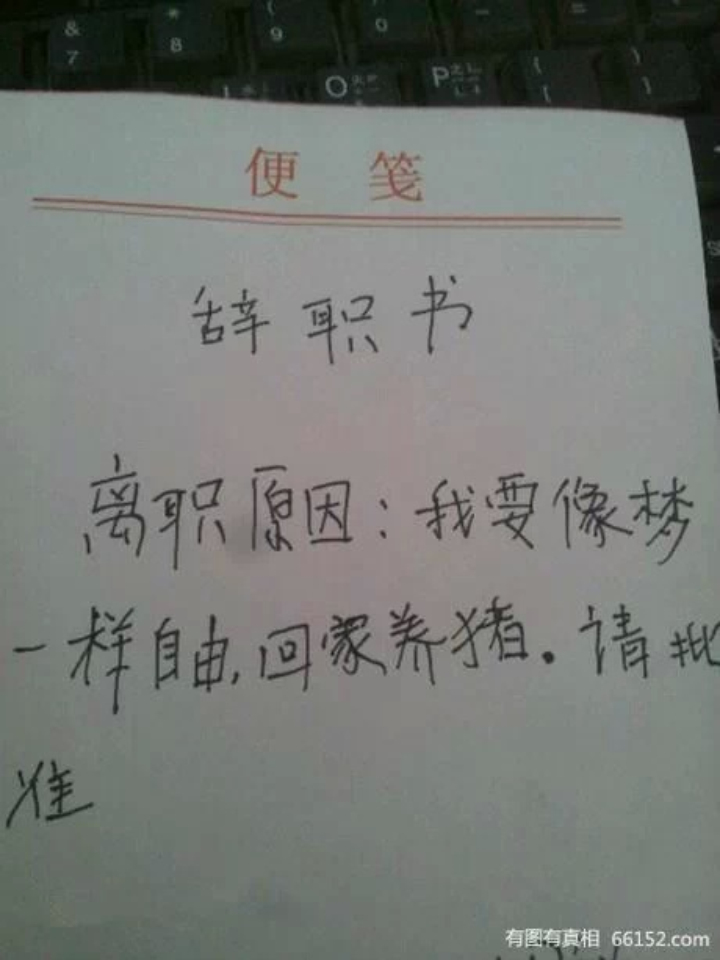 & 7
* 8
( 9
) 0
O
P
{ [
} ]
便 笺
辞职书
离职原因：我要像梦
一样自由,回家养猪。请批
准
有图有真相 66152.com